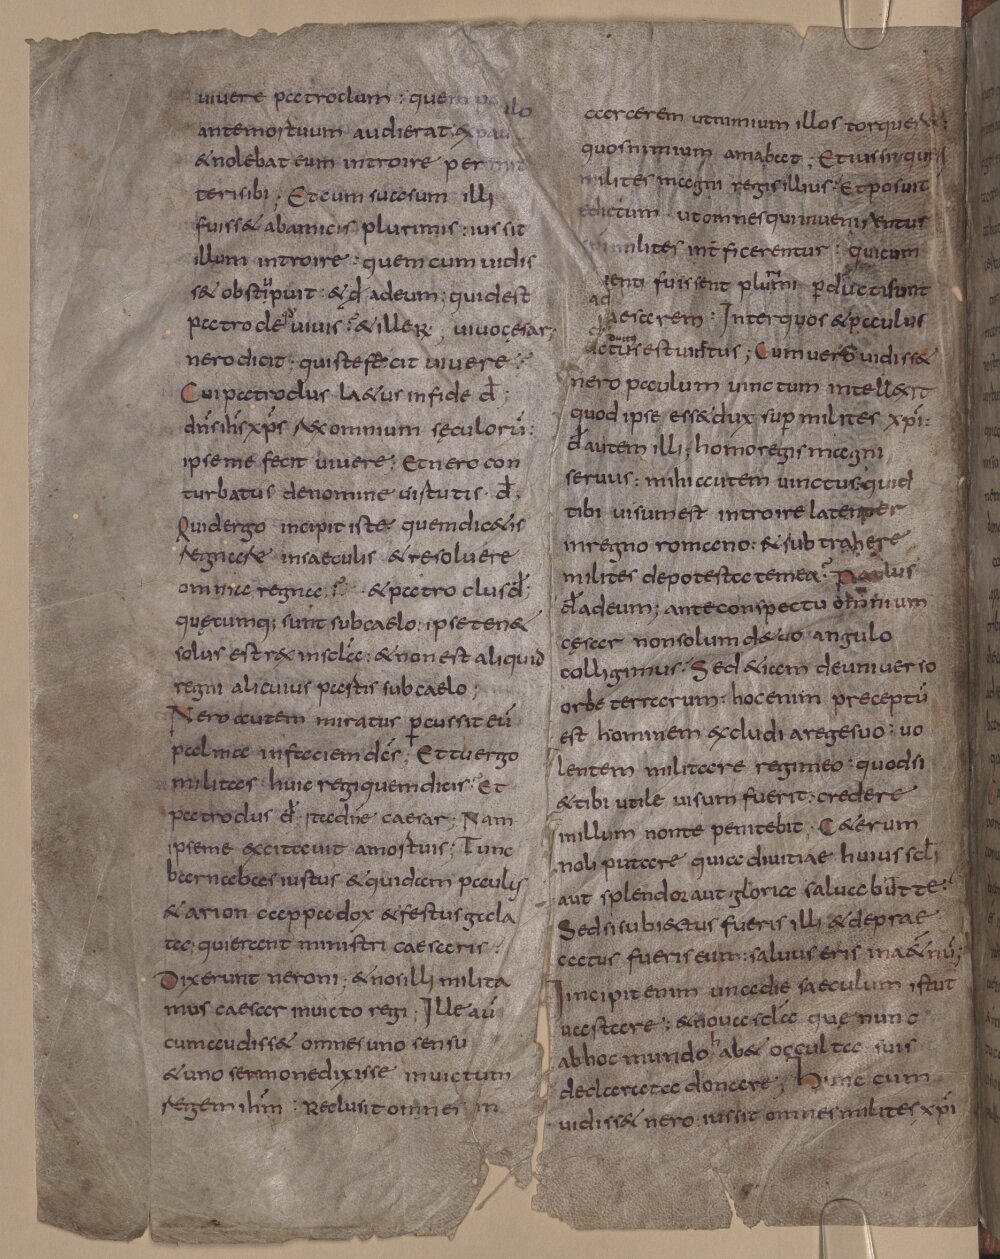 uiuere patroclum : quem paulo
antemortuum audierat &
& nolebat eum introire per mit
teri sibi ; Et cum suasum illi
fuiss& abamicis plurimis : iussit
illum introire : quem cum uidis
s& obstipuit : & d̄ adeum ; quid est
patrocle uiuis ? & ille R̄ , uiuo cesar ;
nero dicit · quis te fecit uiuere ?
Cui patroclus la&us in fide d̄ ;
dn̄s ih̄s xp̄s rex omnium sęculorū :
ipse me fecit uiuere ; Et nero con
turbatus denomine uirtutis · d̄ ,
Quid ergo incipit iste quem dicitis
regnare insaeculis & resoluere
omnia regna ? & patroclus d̄ ;
quęcumq; sunt subcaelo : ipse ten&
solus est rex in scl̄a : & non est aliquid
regni alicuius potestatis subcaelo ;
Nero autem miratus percussit eū
palma infaciem dēs ; Et tu ergo
militas huic regi quem dicis · Et
patroclus d̄ · ita dn̄e caesar ; Nam
ipse me excitauit amortuis ; Tunc
barnabas iustus & quidam paulus
& arion cappadox & festus gala
ta ; qui erant ministri caesaris :
Dixerunt neroni ; & nos illi milita
mus caesar inuicto regi ; Ille aū
cum audiss& omnes uno sensu
& uno sermone dixisse inuictum
regem ih̄m : Reclusit omnes in
carcerem ut nimium illos torqueret
quos nimium amabat ; Et iussit quiri
milites magni regis illius · Et posuit
edictum · ut omnes qui inuenirentur
milites interficerentur : quicum
uenti fuissent plurimi perducti sunt
ad caesarem : Inter quos & paulus
ductus est uinctus ; Cum vero uidiss&
nero paulum uinctum intellexit
quod ipse ess& dux super milites xp̄i :
d̄ autem illi ; homo regis magni
seruus : mihi autem uinctus · quid
tibi uisum est introire latenter
inregno romano : & subtrahere
milites depotestate mea ? Paulus
d̄ adeum ; ante conspectu omnium
cęsar non solum de tuo angulo
colligimus · Sed & iam de uniuerso
orbe terrarum : hoc enim preceptū
est hominem excludi aregesuo : uo
lentem militare regi meo : quod si
& tibi utile uisum fuerit : credere
inillum non te penitebit ; C&erum
noli putare quia diuitiae huius scl̄i
aut splendor aut gloria saluabūt te :
Sed si subiectus fueris illi & deprae
catus fueris eum : saluus eris in a&nū ;
Incipit enim una die saeculum istut
uastare ; & noua scl̄a que nunc
abhoc mundo hab& occulta suis
declarata donare ; Hunc cum
uidiss& nero : iussit omnes milites xp̄i